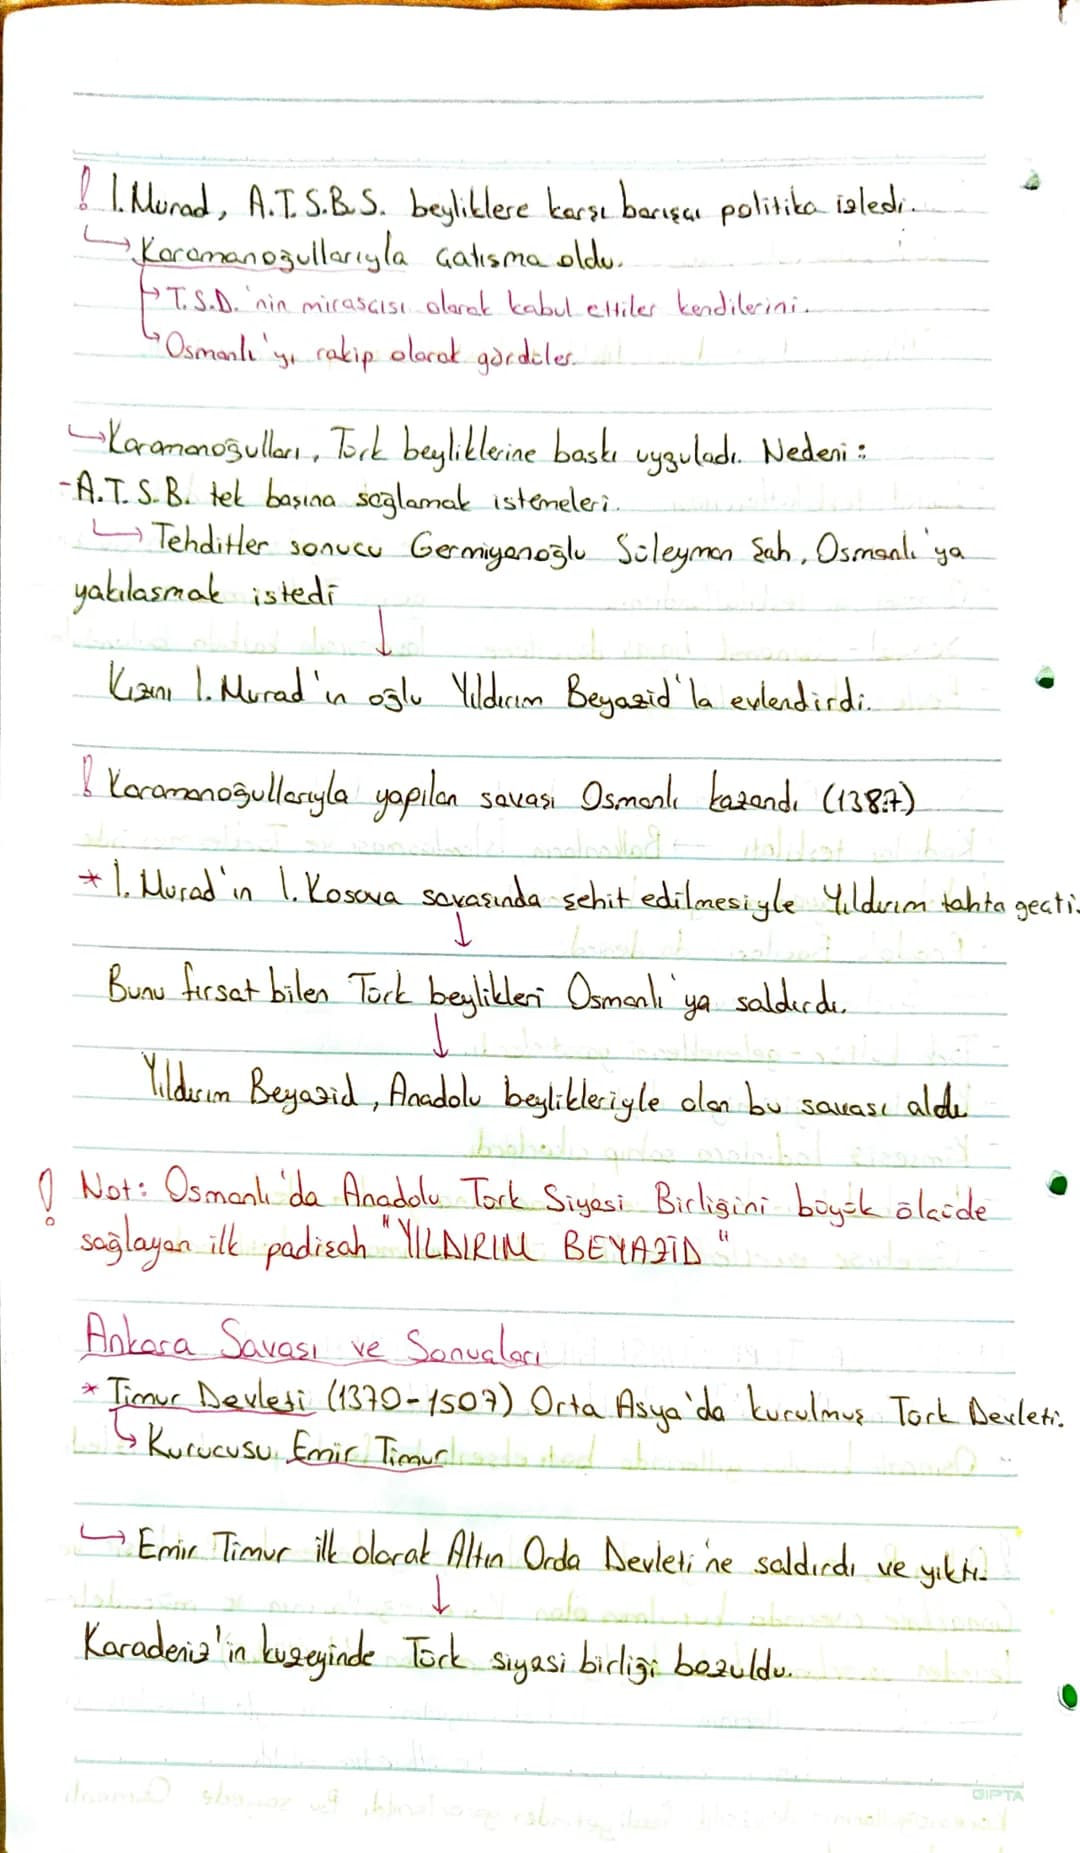 ! I. Murad, A.T.S.B.S. beyliklere karşı barışçı politika izledi.
↳ Karamanoğullarıyla çatışma oldu.
↳ T.S.D.'nin mirasçısı olarak kabul ettiler kendilerini.
↳ Osmanlı'yı rakip olarak gördüler.
↳ Karamanoğulları, Türk beyliklerine baskı uyguladı. Nedeni:
- A.T.S.B. tek başına sağlamak istemeleri.
↳ Tehditler sonucu Germiyanoğlu Süleyman Şah, Osmanlı'ya
yakılaşmak istedi
↓
Kızını I. Murad'ın oğlu Yıldırım Beyazid'la evlendirdi.
! Karamanoğullarıyla yapılan savaşı Osmanlı kazandı (1387)
* I. Murad'ın I. Kosova savaşında şehit edilmesiyle Yıldırım tahta geçti.
↓
Bunu fırsat bilen Türk beylikleri Osmanlı'ya saldırdı.
↓
Yıldırım Beyazid, Anadolu beylikleriyle olan bu savaşı aldı
! Not: Osmanlı'da Anadolu Türk Siyasi Birliğini büyük ölçüde
sağlayan ilk padişah "YILDIRIM BEYAZİD"
Ankara Savaşı ve Sonuçları
* Timur Devleti (1370-1507) Orta Asya'da kurulmuş Türk Devleti.
↳ Kurucusu Emir Timur
↳ Emir Timur ilk olarak Altın Orda Devleti'ne saldırdı ve yıktı.
↓
Karadeniz'in kuzeyinde Türk siyasi birliği bozuldu.
GIPTA